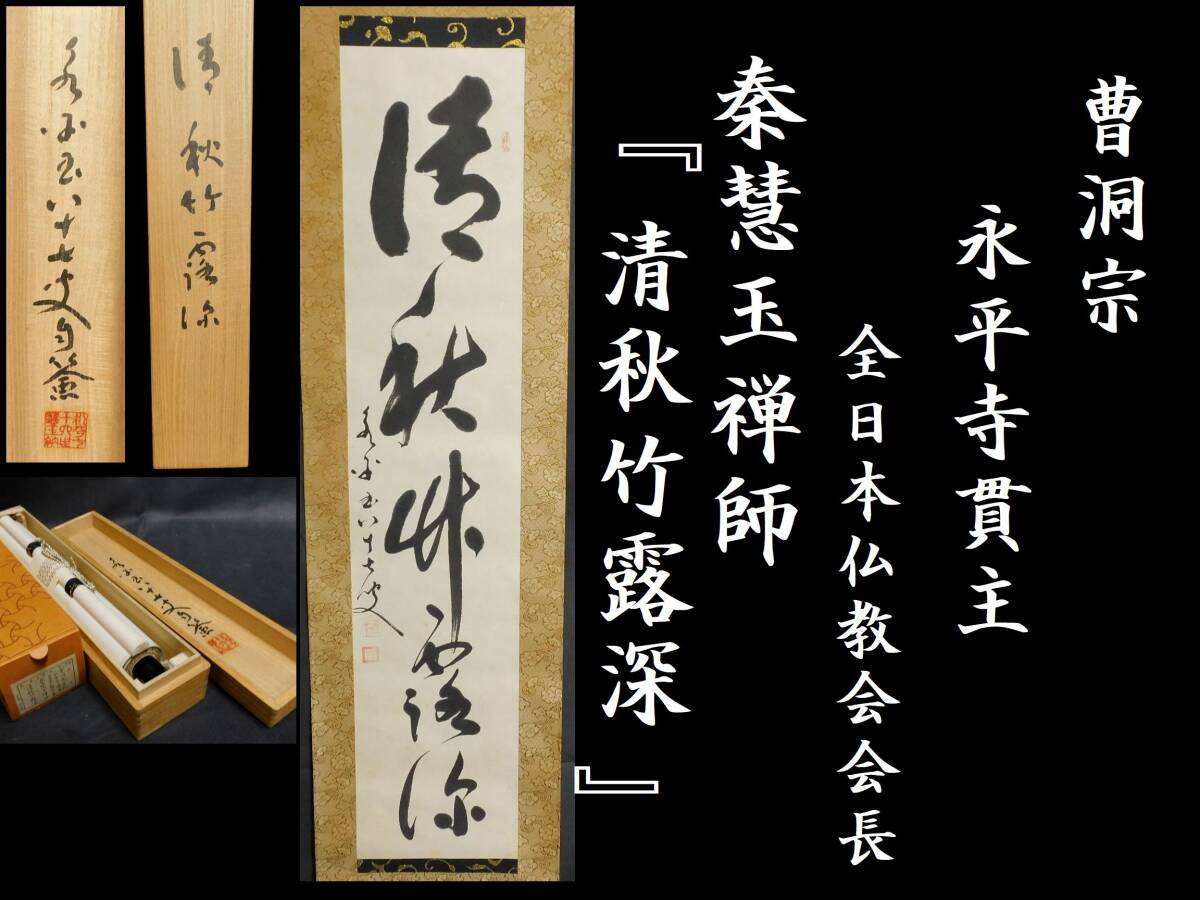 曹洞宗
永平寺貫主
全日本仏教会会長
秦慧玉禅師
『清秋竹露深』
清秋竹露深
永平玉八十七叟
清秋竹露深
永平玉八十七叟自籤
永平玉八十七叟自籤